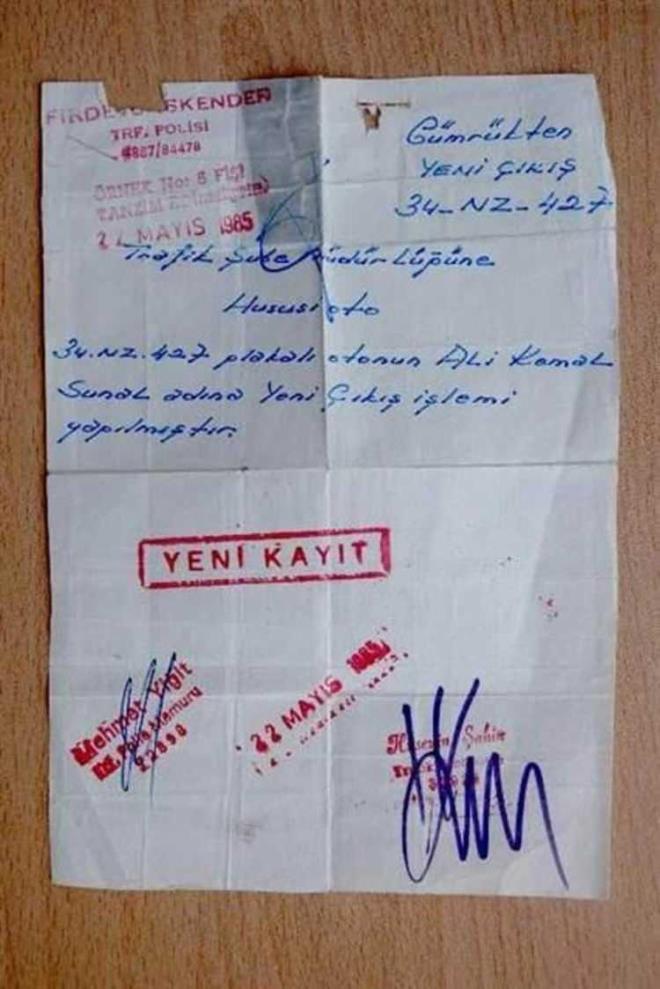 FİRDEVS İSKENDER
TRF. POLİSİ
4867/84478
ÖRNEK No: 6 Fişi
TANZİM
22 MAYIS 1985
Gümrükten
YENİ ÇIKIŞ
34-NZ-427
Trafik Şube Müdürlüğüne
Hususi oto
34.NZ.427 plakalı otonun Ali Kemal
Sunal adına Yeni Çıkış işlemi
yapılmıştır.
YENİ KAYIT
Mehmet Yiğit
Trf. Polis Memuru
22898
22 MAYIS 1985
Hüseyin Şahin